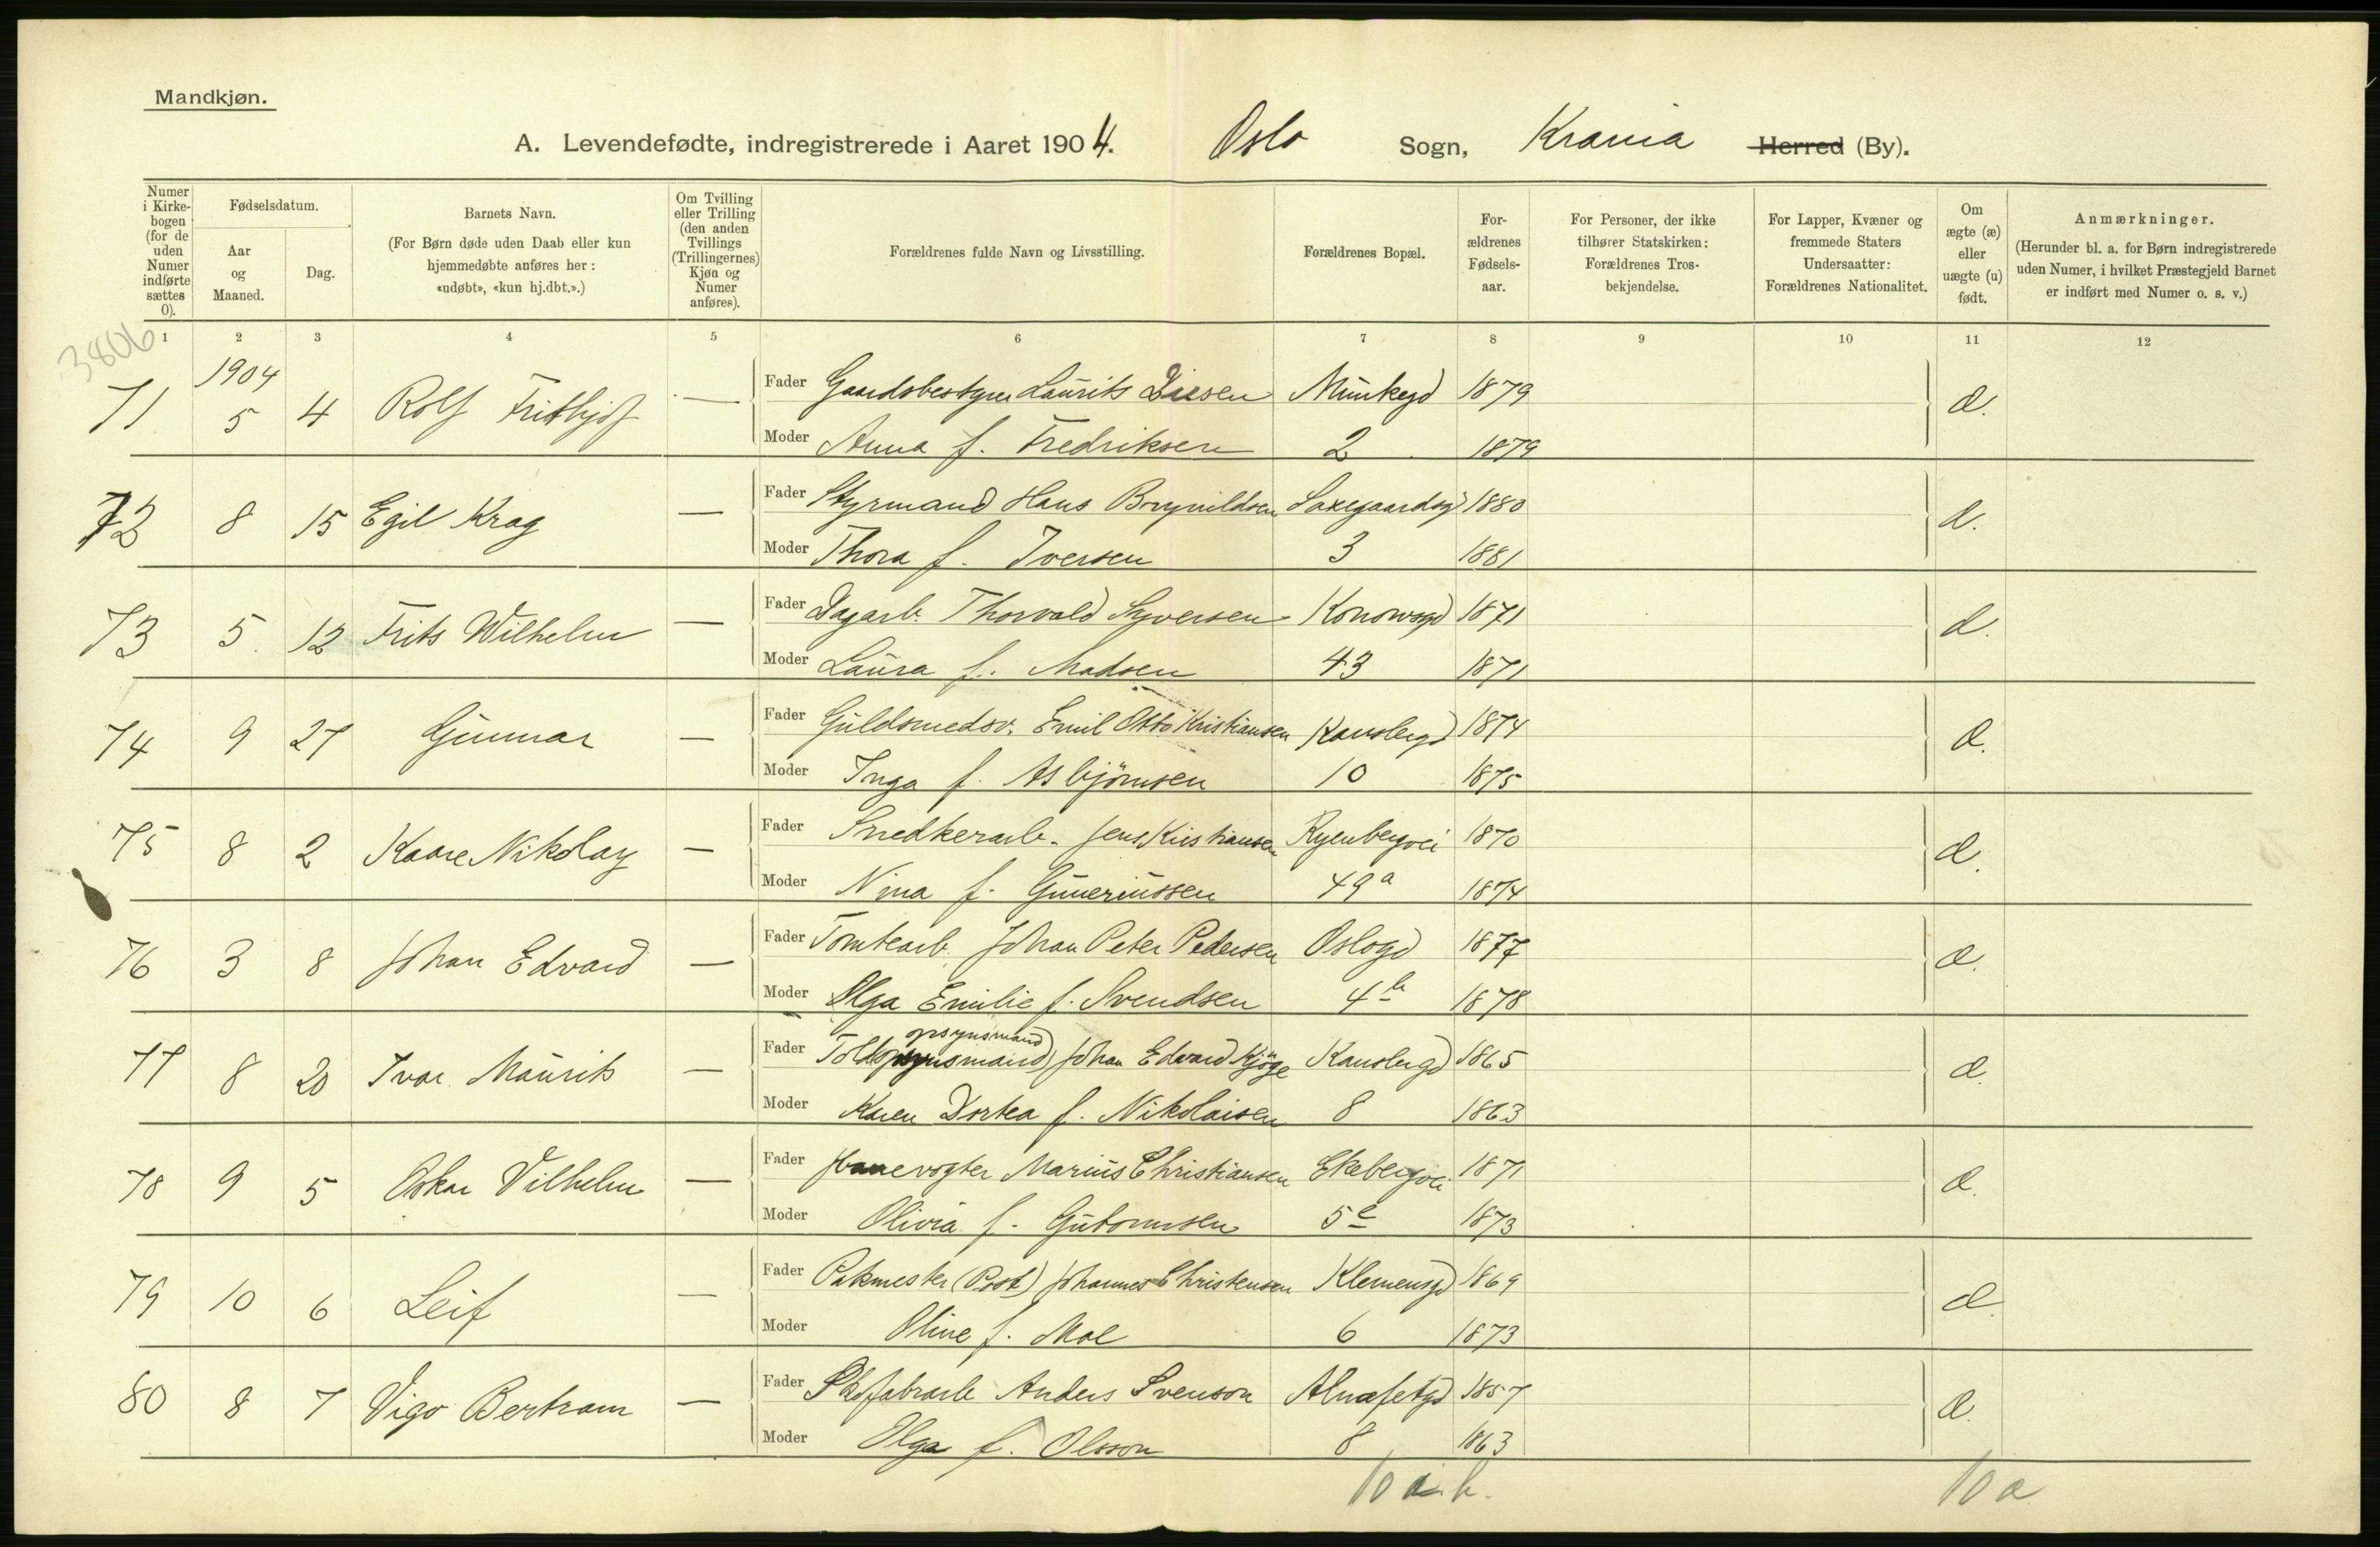 Mandkjøn.
A. Levendefødte, indregistrerede i Aaret 1904. Oslo Sogn, Krania Herred (By).
Numer i Kirkebogen (for de uden Numer indførte sættes 0).
Fødselsdatum.
Aar og Maaned.
Dag.
Barnets Navn.
(For Børn døde uden Daab eller kun hjemmedøbte anføres her: «udøbt», «kun hj.dbt.».)
Om Tvilling eller Trilling (den anden Tvillings (Trillingernes) Kjøn og Numer anføres).
Forældrenes fulde Navn og Livsstilling.
Forældrenes Bopæl.
Forældrenes Fødselsaar.
For Personer, der ikke tilhører Statskirken: Forældrenes Trosbekjendelse.
For Lapper, Kvæner og fremmede Staters Undersaatter: Forældrenes Nationalitet.
Om ægte (æ) eller uægte (u) født.
Anmærkninger.
(Herunder bl. a. for Børn indregistrerede uden Numer, i hvilket Præstegjeld Barnet er indført med Numer o. s. v.)
1 2 3 4 5 6 7 8 9 10 11 12
3806
1904
71 5 4 Rolf Frithjof — Fader Gaardsbestyrer Laurits Munkegd 1879 æ.
Moder Anna f. Fredriksen 2 1879
72 8 15 Egil Krag — Fader Styrmand Hans Brynildsen Saxegaardsg 1880 æ.
Moder Thora f. Iversen 3 1881
73 5. 12 Frits Wilhelm — Fader Dagarb. Thorvald Syversen Konowsgd 1871 æ.
Moder Laura f. Madsen 43 1871
74 9 27 Gunnar — Fader Guldsmedsv. Emil Otto Kristiansen Kanslergd 1874 æ.
Moder Inga f. Asbjørnsen 10 1875
75 8 2 Kaare Nikolay — Fader Snedkerarb. Jens Kristiansen Ryenbergvei 1870 æ.
Moder Nina f. Guneriussen 49a 1874
76 3 8 Johan Edvard — Fader Tomtearb. Johan Peter Pedersen Oslogd 1877 æ.
Moder Olga Emilie f. Svendsen 4b 1878
opsynsmand
77 8 20 Ivar Maurits — Fader Toldopsynsmand Johan Edvard Kjøge Kanslergd 1865 æ.
Moder Karen Dortea f. Nikolaisen 8 1863
78 9 5 Oskar Vilhelm — Fader Banevogter Marius Christiansen Ekebergvei 1871 æ.
Moder Olivia f. Gutormsen 5c 1873
79 10 6 Leif — Fader Pakmester (Post) Johannes Christensen Klemensgd 1869 æ.
Moder Oline f. Moe 6 1873
80 8 7 Vigo Bertram — Fader Skofabrarb Anders Svenson Alnafetgd 1857 æ.
Moder Olga f. Olsson 8 1863
10 i.b. 10 æ